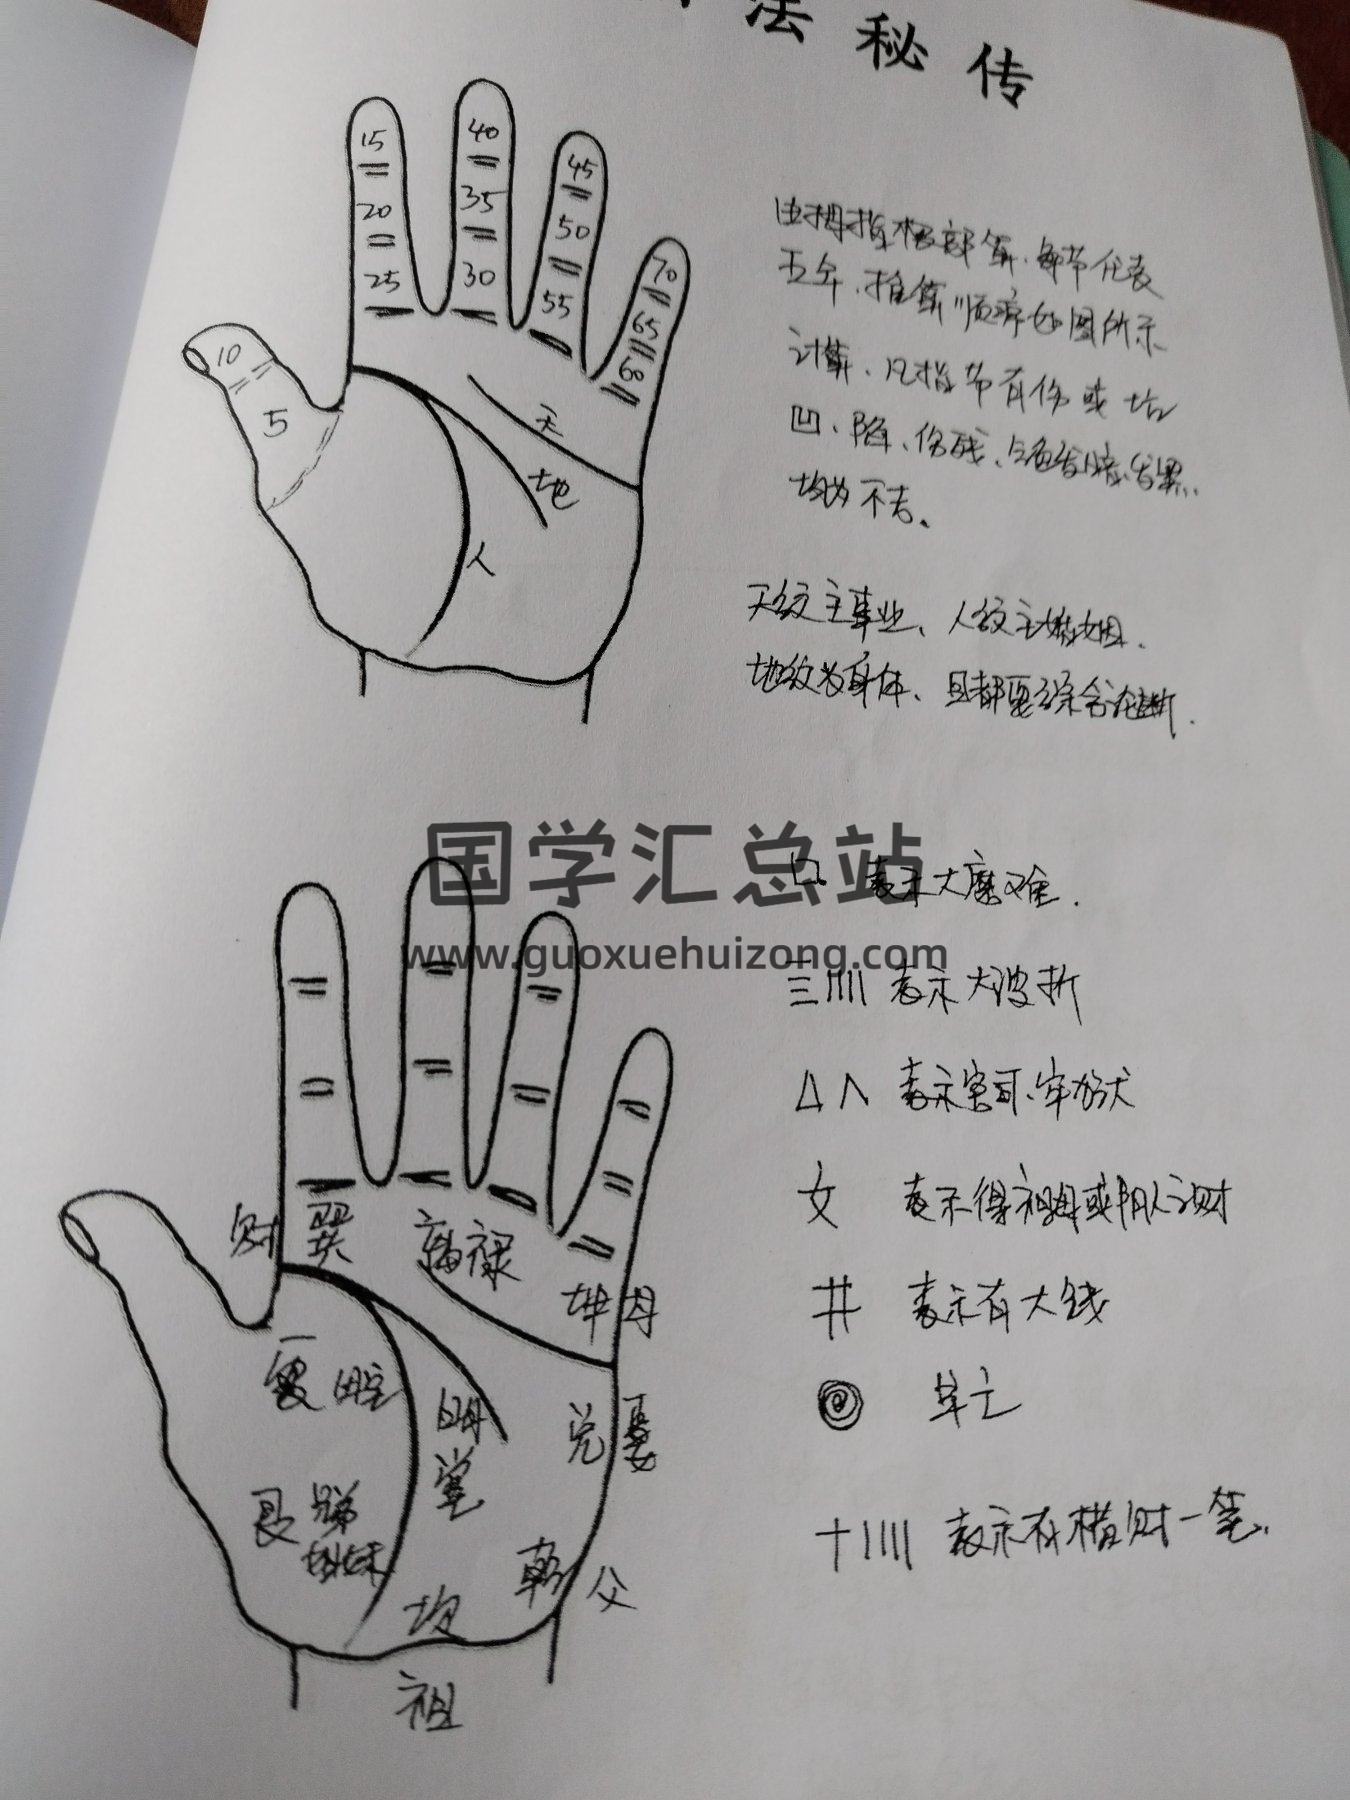 法秘传
15
20
25
40
35
30
45
50
55
70
65
60
10
5
天
地
人
由拇指根部算、每节代表
五年、推算顺序如图所示
计算、凡指节有伤或
凹、陷、伤残、色发暗、发黑、
均为不吉。
天纹主事业、人纹主婚姻.
地纹为身体、且都要综合论断.
国学汇总站
www.guoxuehuizong.com
口 表示大磨难.
三 |||| 表示大波折
△ 八 表示官司、牢狱
女 表示得祖母或阴人之财
井 表示有大钱
◎ 早亡
十 |||| 表示有横财一笔.
财 巽
福禄
坤 母
震 田宅
明堂
兑 妻
艮 兄弟
姐妹
乾 父
坎
祖